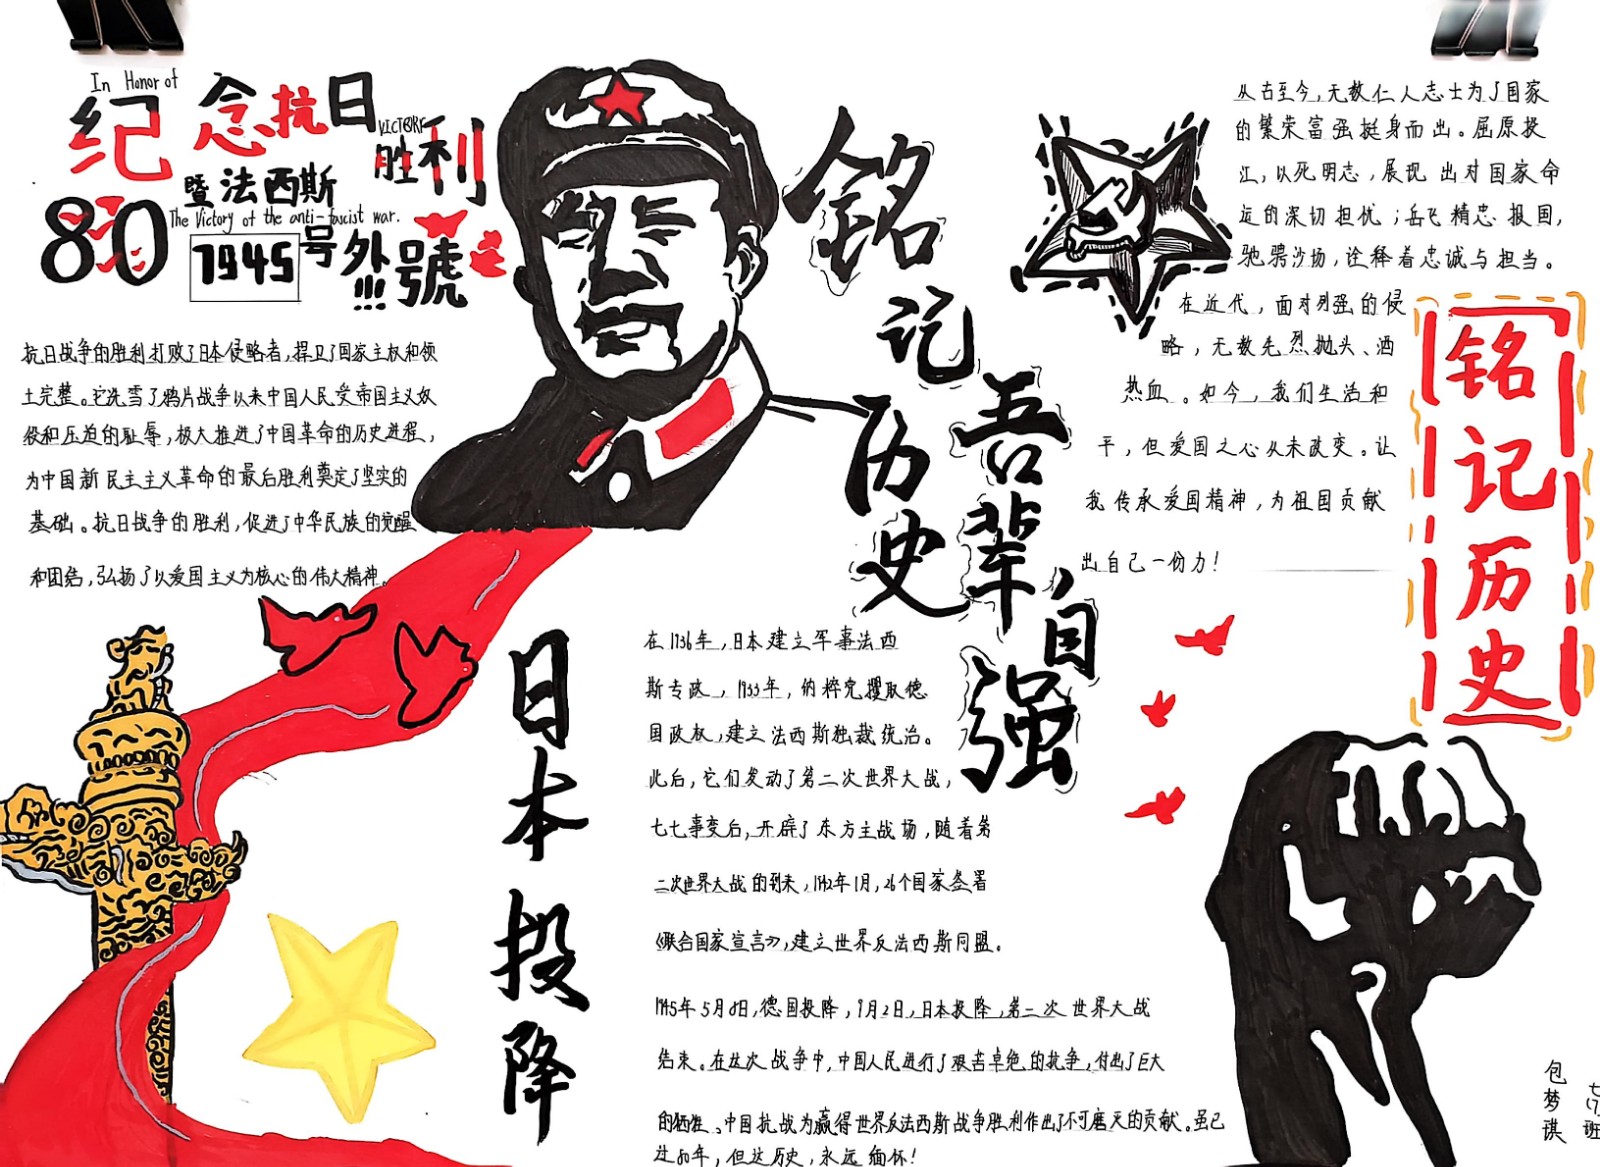 In Honor of
纪念抗日
VICTORY
胜利
暨法西斯
The Victory of the anti-fascist war.
80
1945
号外號
!!!
抗日战争的胜利打败了日本侵略者,捍卫了国家主权和领
土完整。它洗雪了鸦片战争以来中国人民受帝国主义奴
役和压迫的耻辱,极大推进了中国革命的历史进程,
为中国新民主主义革命的最后胜利奠定了坚实的
基础。抗日战争的胜利,促进了中华民族的觉醒
和团结,弘扬了以爱国主义为核心的伟大精神。
铭记历史
吾辈自强
从古至今,无数仁人志士为了国家
的繁荣富强挺身而出。屈原投
江,以死明志,展现出对国家命
运的深切担忧;岳飞精忠报国,
驰骋沙场,诠释着忠诚与担当。
在近代,面对列强的侵
略,无数先烈抛头、洒
热血。如今,我们生活和
平,但爱国之心从未改变。让
我传承爱国精神,为祖国贡献
出自己一份力!
铭记历史
日本投降
在1936年,日本建立军事法西
斯专政,1933年,纳粹党攫取德
国政权,建立法西斯独裁统治。
此后,它们发动了第二次世界大战,
七七事变后,开辟了东方主战场,随着第
二次世界大战的到来,1942年1月,26个国家签署
《联合国家宣言》,建立世界反法西斯同盟。
1945年5月8日,德国投降,9月2日,日本投降,第二次世界大战
结束。在这次战争中,中国人民进行了艰苦卓绝的抗争,付出了巨大
的牺牲、中国抗战为赢得世界反法西斯战争胜利作出了不可磨灭的贡献。虽已
过80年,但这历史,永远缅怀!
包梦琪